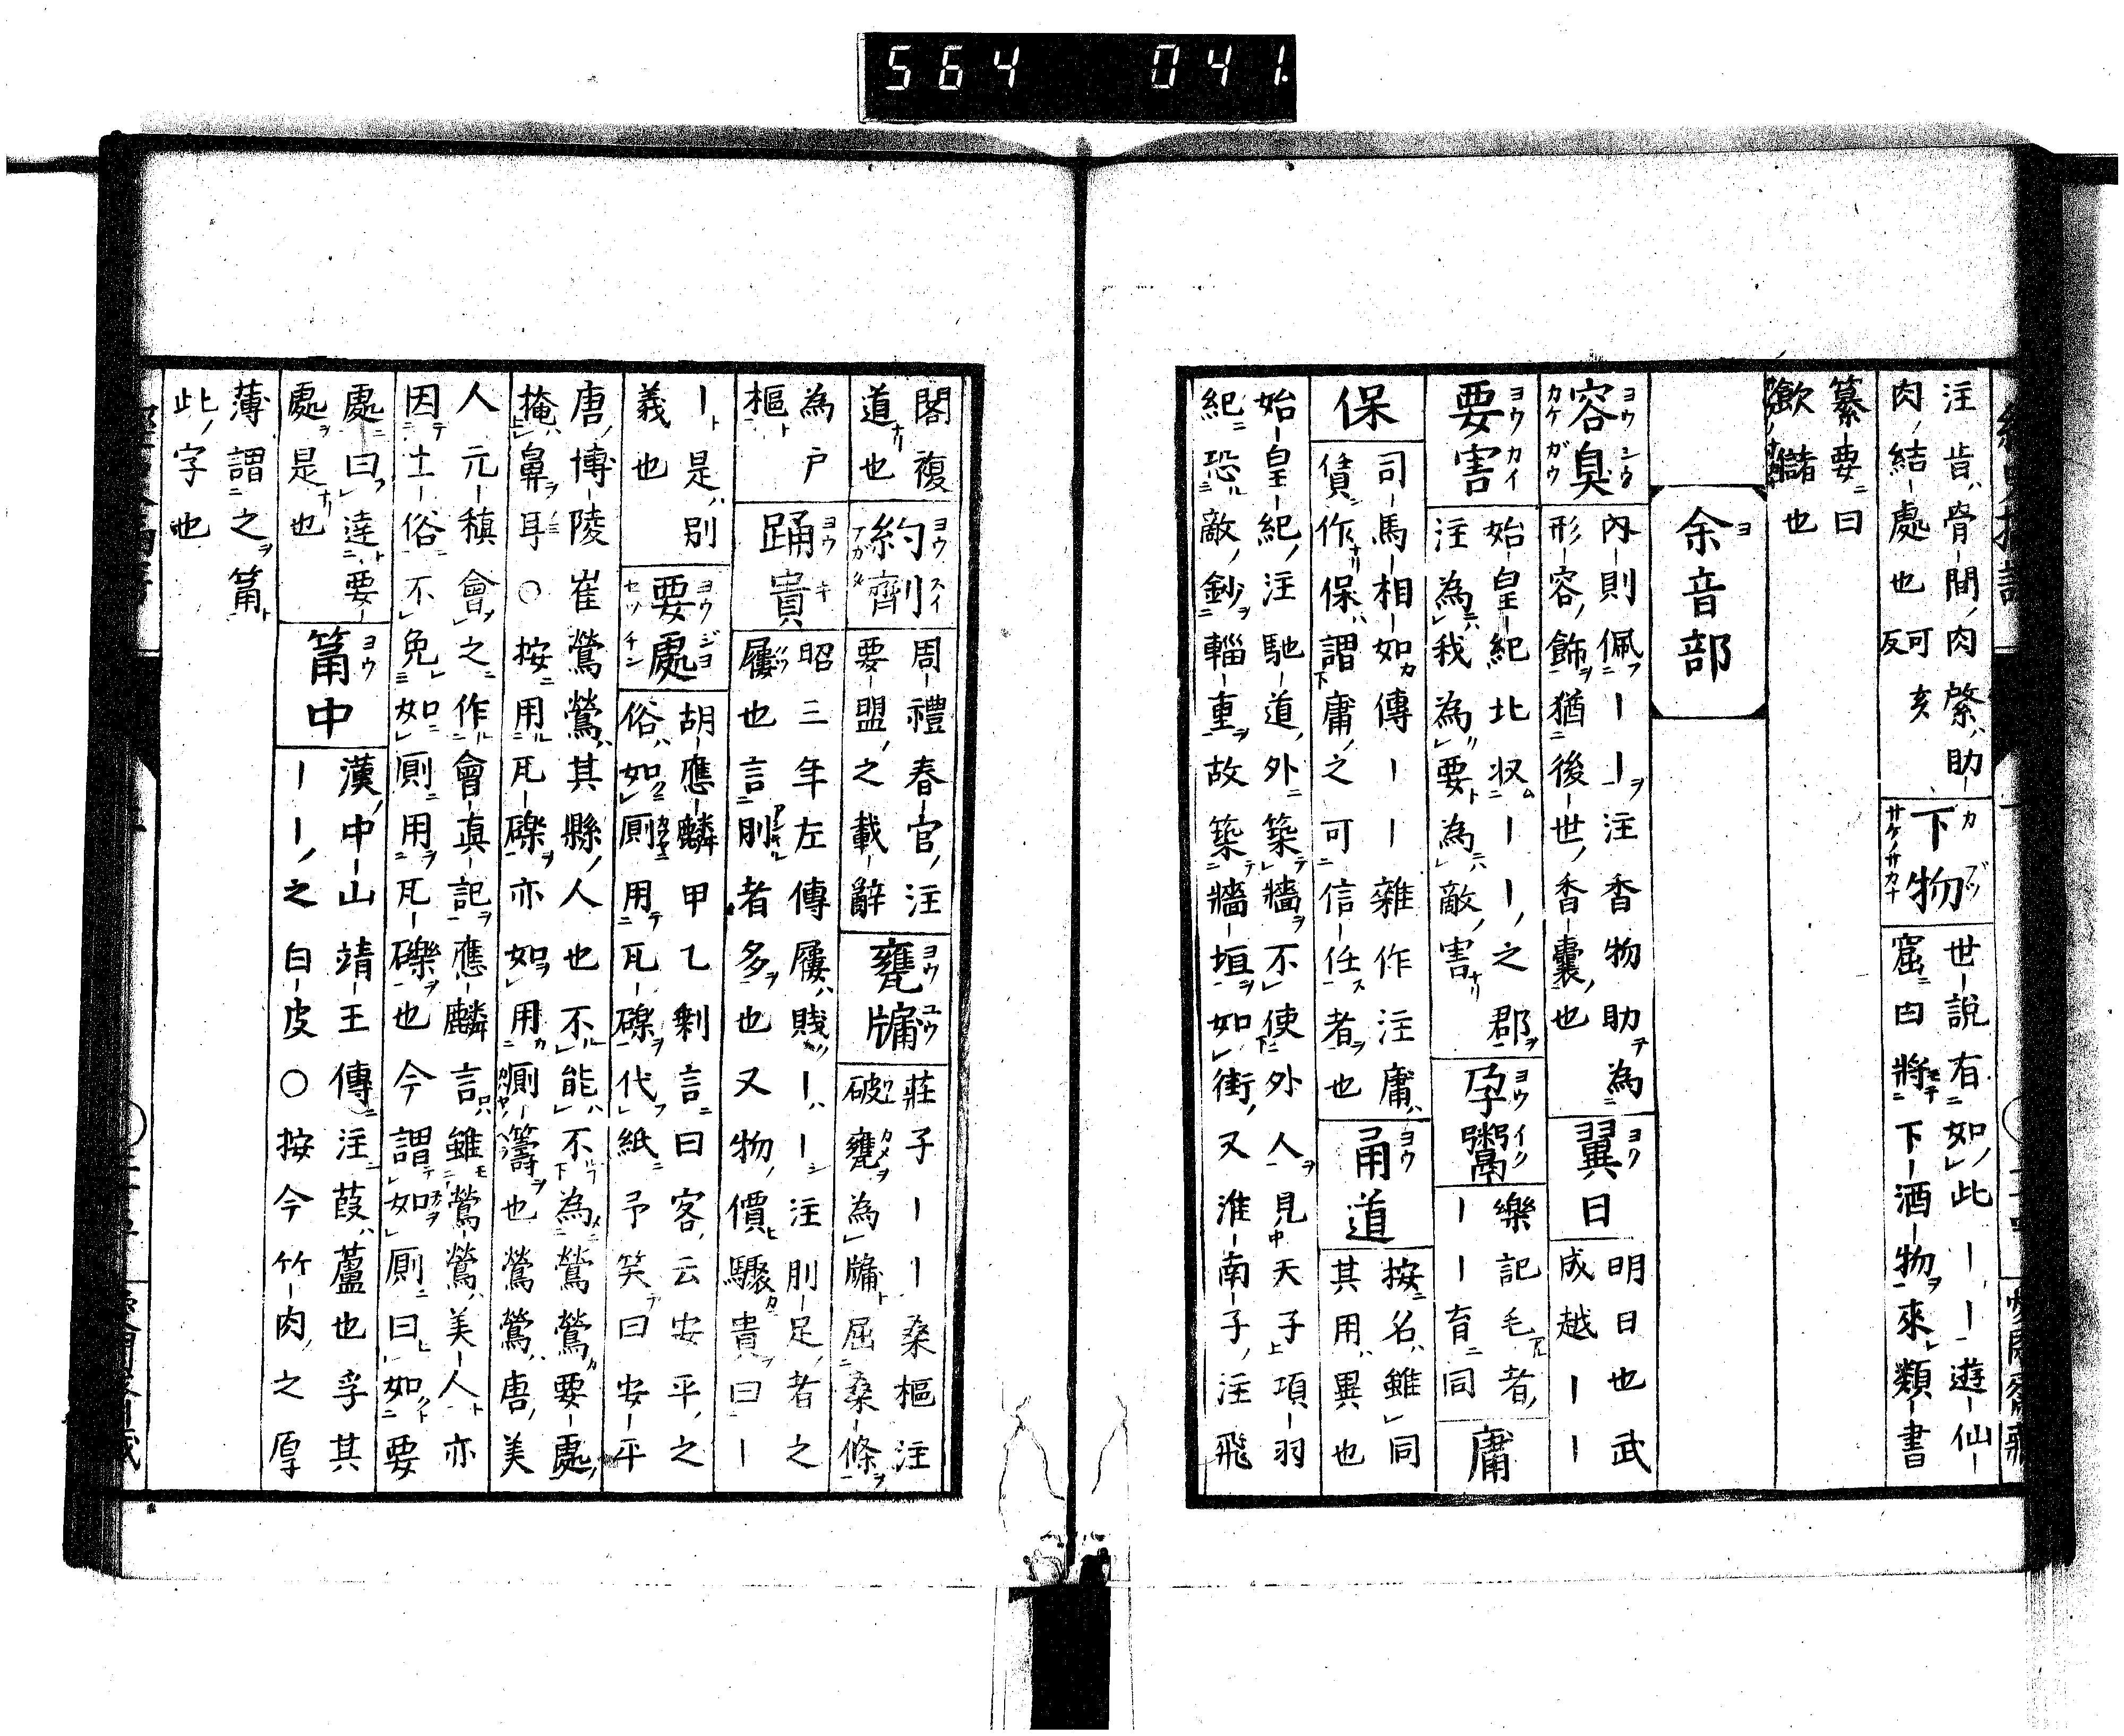 564 041
注肯骨間肉綮助
肉結處也可亥反
下物
カブツ
サケノサカナ
世說有如此ーー遊仙
窟曰將下酒物來類書
纂要曰
飲儲也
余音部
ヨ
容臭
ヨウシウ
カケガウ
內則佩ーー注香物助為
形容飾猶後世香囊也
翼日
ヨク
明日也武
成越ーー
要害
ヨウカイ
始皇紀北収ーー之郡
注為我為要為敵害
孕鬻
ヨウイク
樂記毛者
ーー育同
庸
保
司馬相如傳ーー雜作注庸
賃作保謂庸之可信任者也
甬道
ヨウ
按名雖同
其用異也
始皇紀注馳道外築牆不使外人見天子項羽
紀恐敵鈔輜重故築牆垣如街又淮南子注飛
閣複
道也
約劑
ヨウスイ
周禮春官注
要盟之載辭
甕牖
ヨウユウ
莊子ーー桑樞注
破甕為牖屈桑條
為戶
樞
踊貴
ヨウキ
昭三年左傳屨賤ーー注刖足者之
屨也言刖者多也又物價驟貴曰ー
ー是別
義也
要處
ヨウジヨ
セツチン
胡應麟甲乙剩言曰客云安平之
俗如厠用瓦礫代紙予笑曰安平
唐博陵崔鶯鶯其縣人也不能不為鶯鶯要處
掩鼻耳○按用瓦礫亦如用厠籌也鶯鶯唐美
人元稹會之作會真記應麟言雖鶯鶯美人亦
因土俗不免如厠用瓦礫也今謂如厠曰如要
處曰達要
處是也
筩中
ヨウ
漢中山靖王傳注葭蘆也孚其
ーー之白皮○按今竹肉之厚
薄謂之筩
此字也